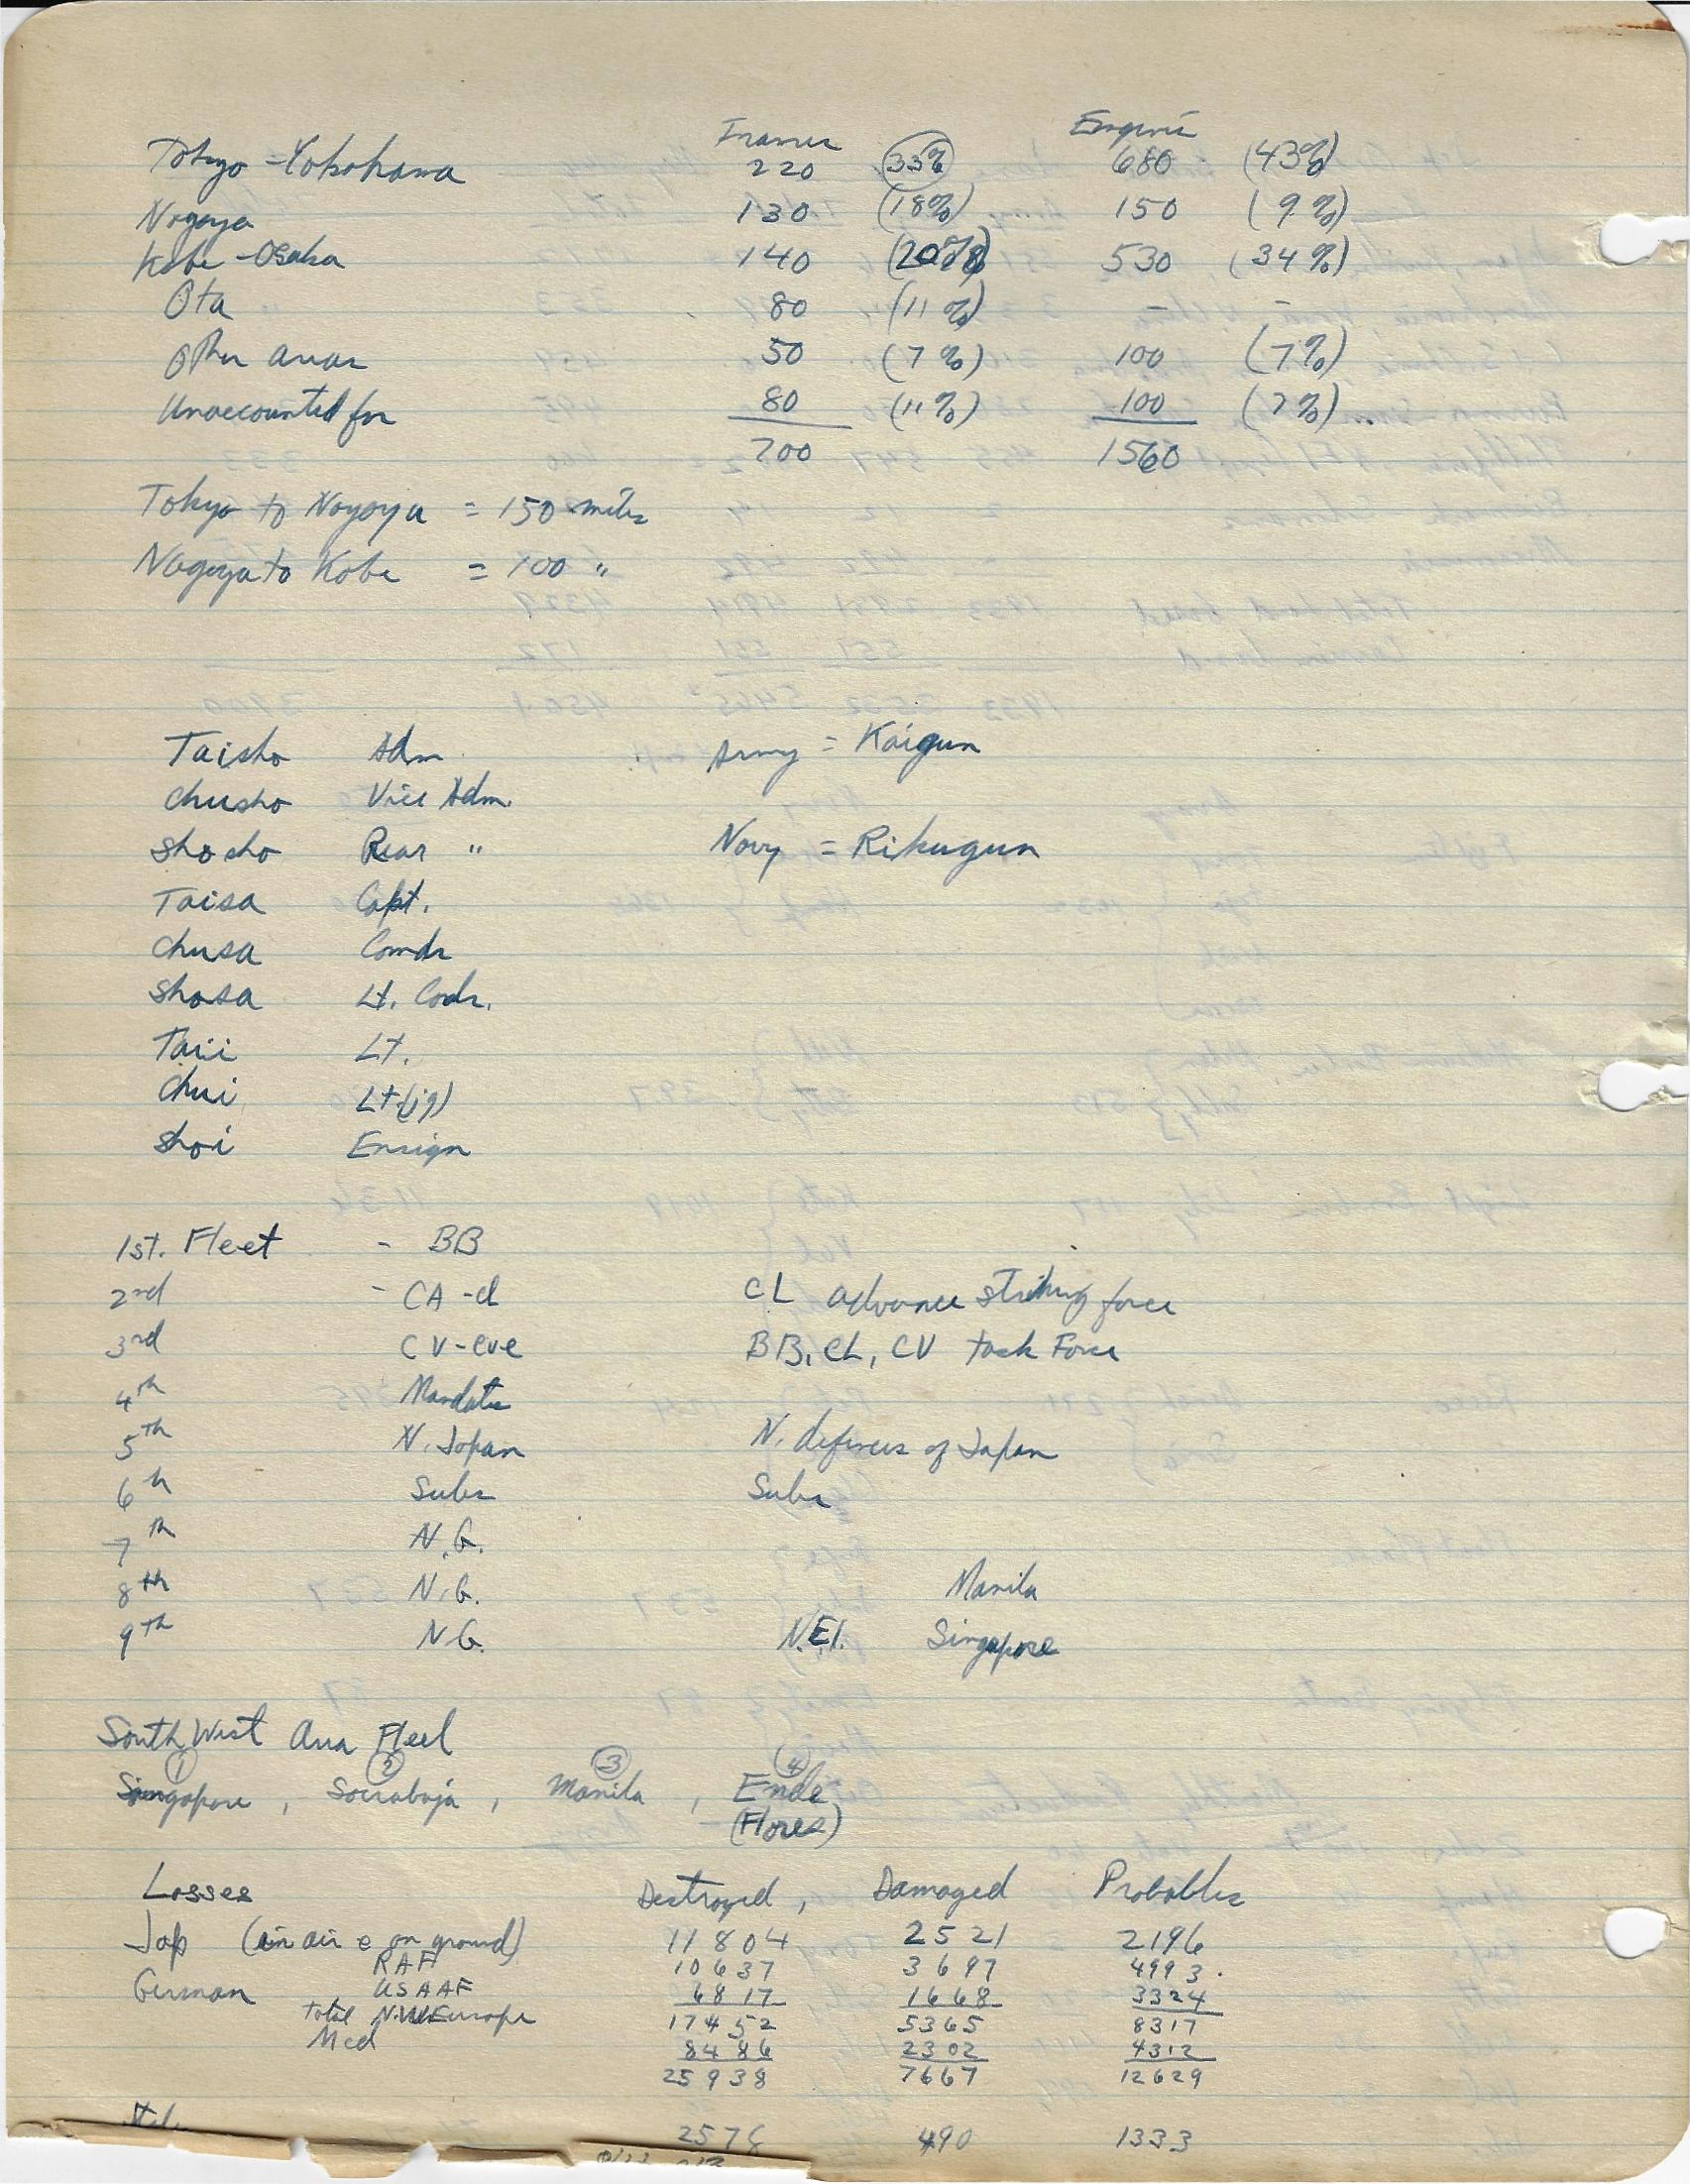 Frames Engines
Tokyo - Yokohama 220 (33%) 680 (43%)
Nagoya 130 (18%) 150 (9%)
Kobe - Osaka 140 (20%) 530 (34%)
Ota 80 (11%) - -
Other areas 50 (7%) 100 (7%)
Unaccounted for 80 (11%) 100 (7%)
700 1560
Tokyo to Nagoya = 150 miles
Nagoya to Kobe = 100 "
Taisho Adm. Army = Kaigun
Chusho Vice Adm.
Shosho Rear " Navy = Rikugun
Taisa Capt.
Chusa Comdr
Shosa Lt. Comdr.
Taii Lt.
Chui Lt (jg)
Shoi Ensign
1st. Fleet - BB
2nd - CA - CL CL advance striking force
3rd CV - CVE BB, CL, CV task Force
4th Mandates
5th N. Japan N. defenses of Japan
6th Subs Subs
7th N.G.
8th N.G. Manila
9th N.G. N.E.I. Singapore
South West Area Fleet
① ② ③ ④
Singapore, Soerabaja, Manila, Ende
(Flores)
Losses Destroyed, Damaged Probables
Jap (in air & on ground) 11804 2521 2196
RAF 10637 3697 4993.
German USAAF 6817 1668 3324
Total N.W. Europe 17452 5365 8317
Med 8486 2302 4312
25938 7667 12629
2578 490 1333